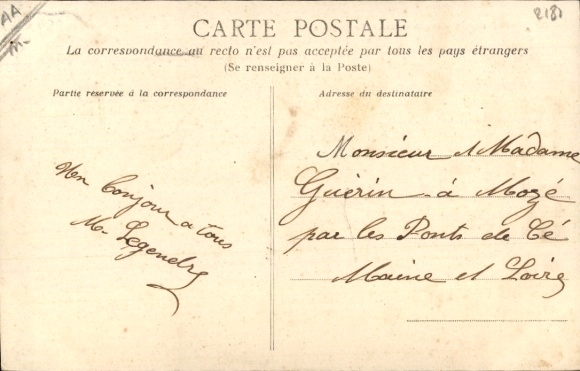 AA
2181
CARTE POSTALE
La correspondance au recto n'est pas acceptée par tous les pays étrangers
(Se renseigner à la Poste)
Partie réservée à la correspondance
Adresse du destinataire
bonjour a tous
M. Legendre
Monsieur et Madame
Guérin à Mozé
par les Ponts de Cé
Maine et Loire